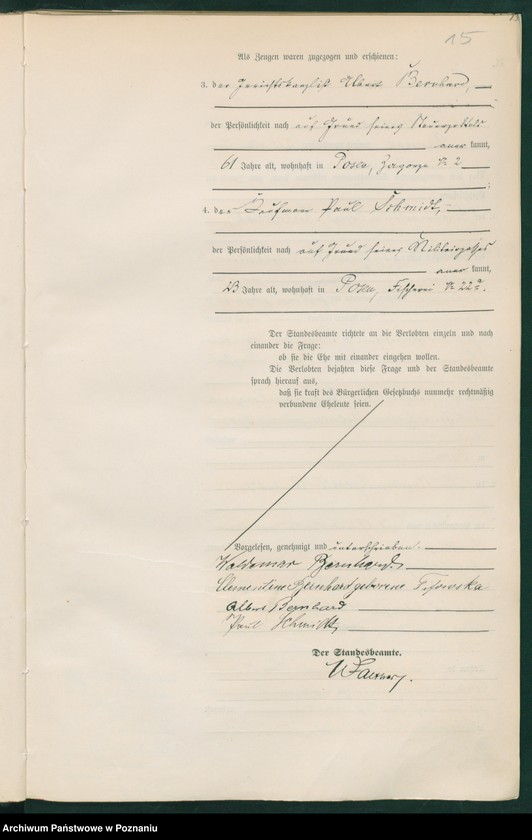 15
Als Zeugen waren zugezogen und erschienen:
3. der Gerichtskanzlist Albert Bernhard,
der Persönlichkeit nach auf Grund seines Steuerzettels
aner kannt,
61 Jahre alt, wohnhaft in Posen, Zagorze № 2
;
4. der Kaufmann Paul Schmidt,
der Persönlichkeit nach auf Grund seines Militairpasses
aner kannt,
23 Jahre alt, wohnhaft in Posen, Fischerei № 22a.
Der Standesbeamte richtete an die Verlobten einzeln und nach
einander die Frage:
ob sie die Ehe mit einander eingehen wollen.
Die Verlobten bejahten diese Frage und der Standesbeamte
sprach hierauf aus,
daß sie kraft des Bürgerlichen Gesetzbuchs nunmehr rechtmäßig
verbundene Eheleute seien.
Vorgelesen, genehmigt und unterschrieben.
Waldemar Bernhard
Clementine Bernhard geborene
Albert Bernhard
Paul Schmidt
Der Standesbeamte.
Archiwum Państwowe w Poznaniu